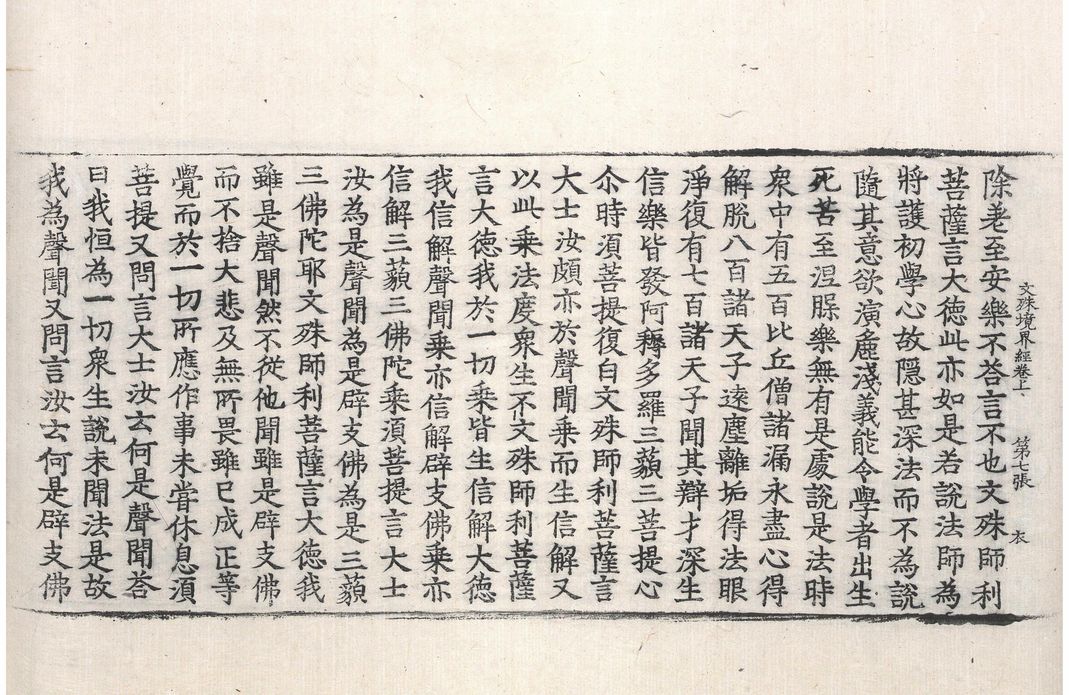 文殊境界經卷上 第七張 衣
除差至安樂不荅言不也文殊師利
菩薩言大德此亦如是若說法師為
將護初學心故隱甚深法而不為說
隨其意欲演麁淺義能令學者出生
死苦至涅槃樂無有是處說是法時
衆中有五百比丘僧諸漏永盡心得
解脫八百諸天子遠塵離垢得法眼
淨復有七百諸天子聞其辯才深生
信樂皆發阿耨多羅三藐三菩提心
尒時須菩提復白文殊師利菩薩言
大士汝頗亦於聲聞乗而生信解又
以此乗法度衆生不文殊師利菩薩
言大德我於一切乗皆生信解大德
我信解聲聞乗亦信解辟支佛乗亦
信解三藐三佛陀乗須菩提言大士
汝為是聲聞為是辟支佛為是三藐
三佛陀耶文殊師利菩薩言大德我
雖是聲聞然不從他聞雖是辟支佛
而不捨大悲及無所畏雖已成正等
覺而於一切所應作事未嘗休息須
菩提又問言大士汝云何是聲聞荅
曰我恒為一切衆生說未聞法是故
我為聲聞又問言汝云何是辟支佛